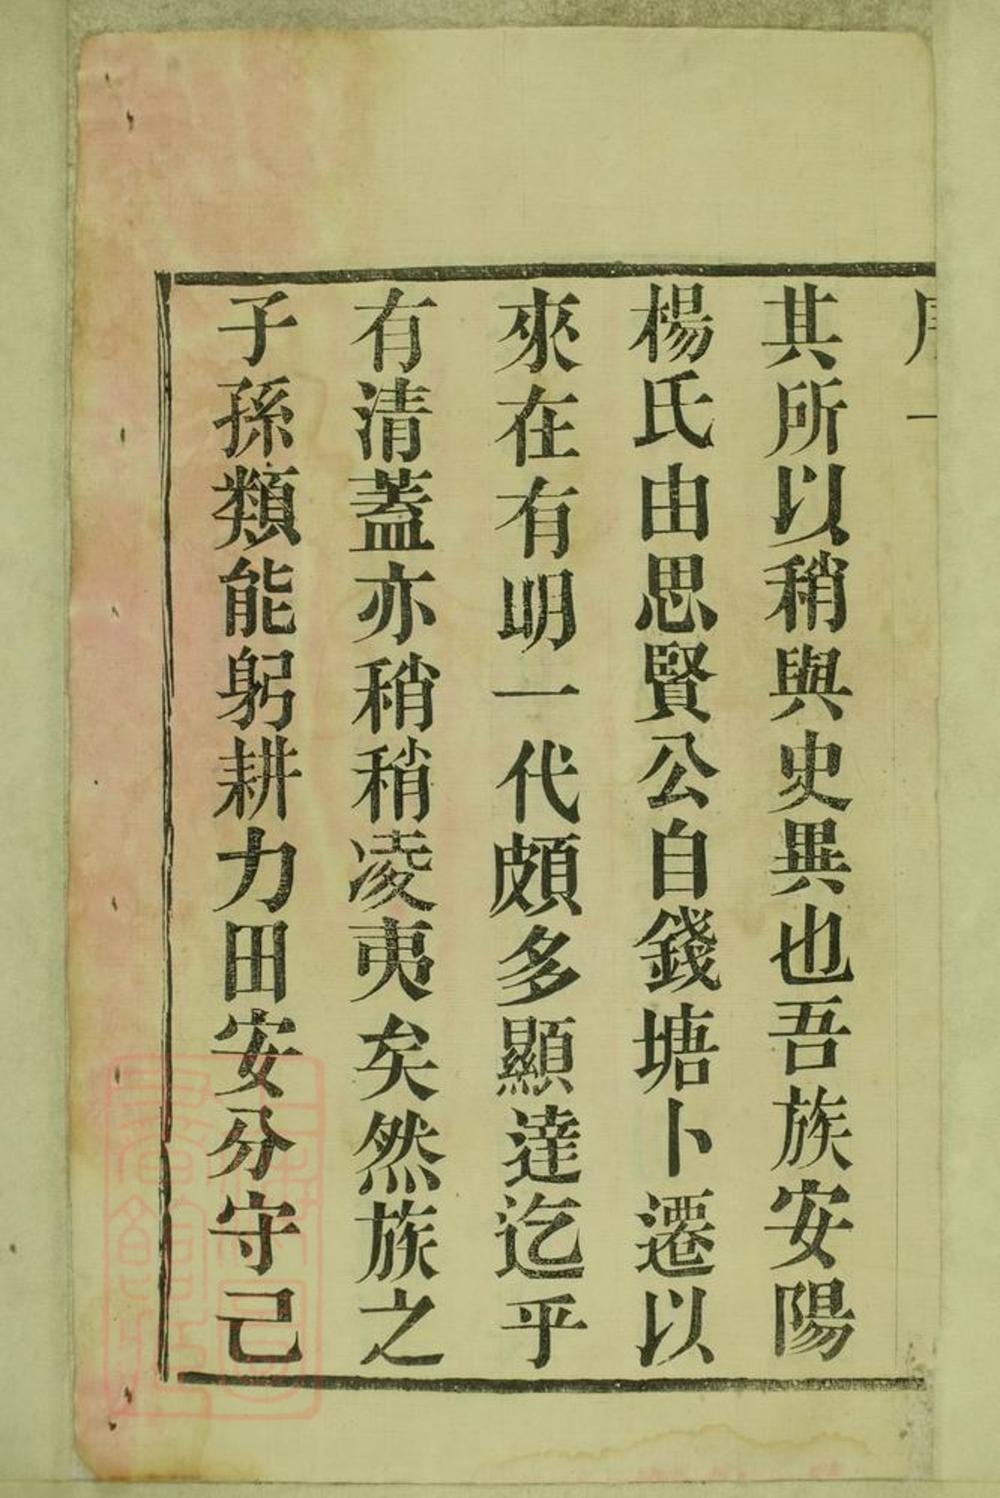 其所以稍與史異也吾族安陽
楊氏由思賢公自錢塘卜遷以
來在有明一代頗多顯達迄乎
有清蓋亦稍稍凌夷矣然族之
子孫類能躬耕力田安分守己